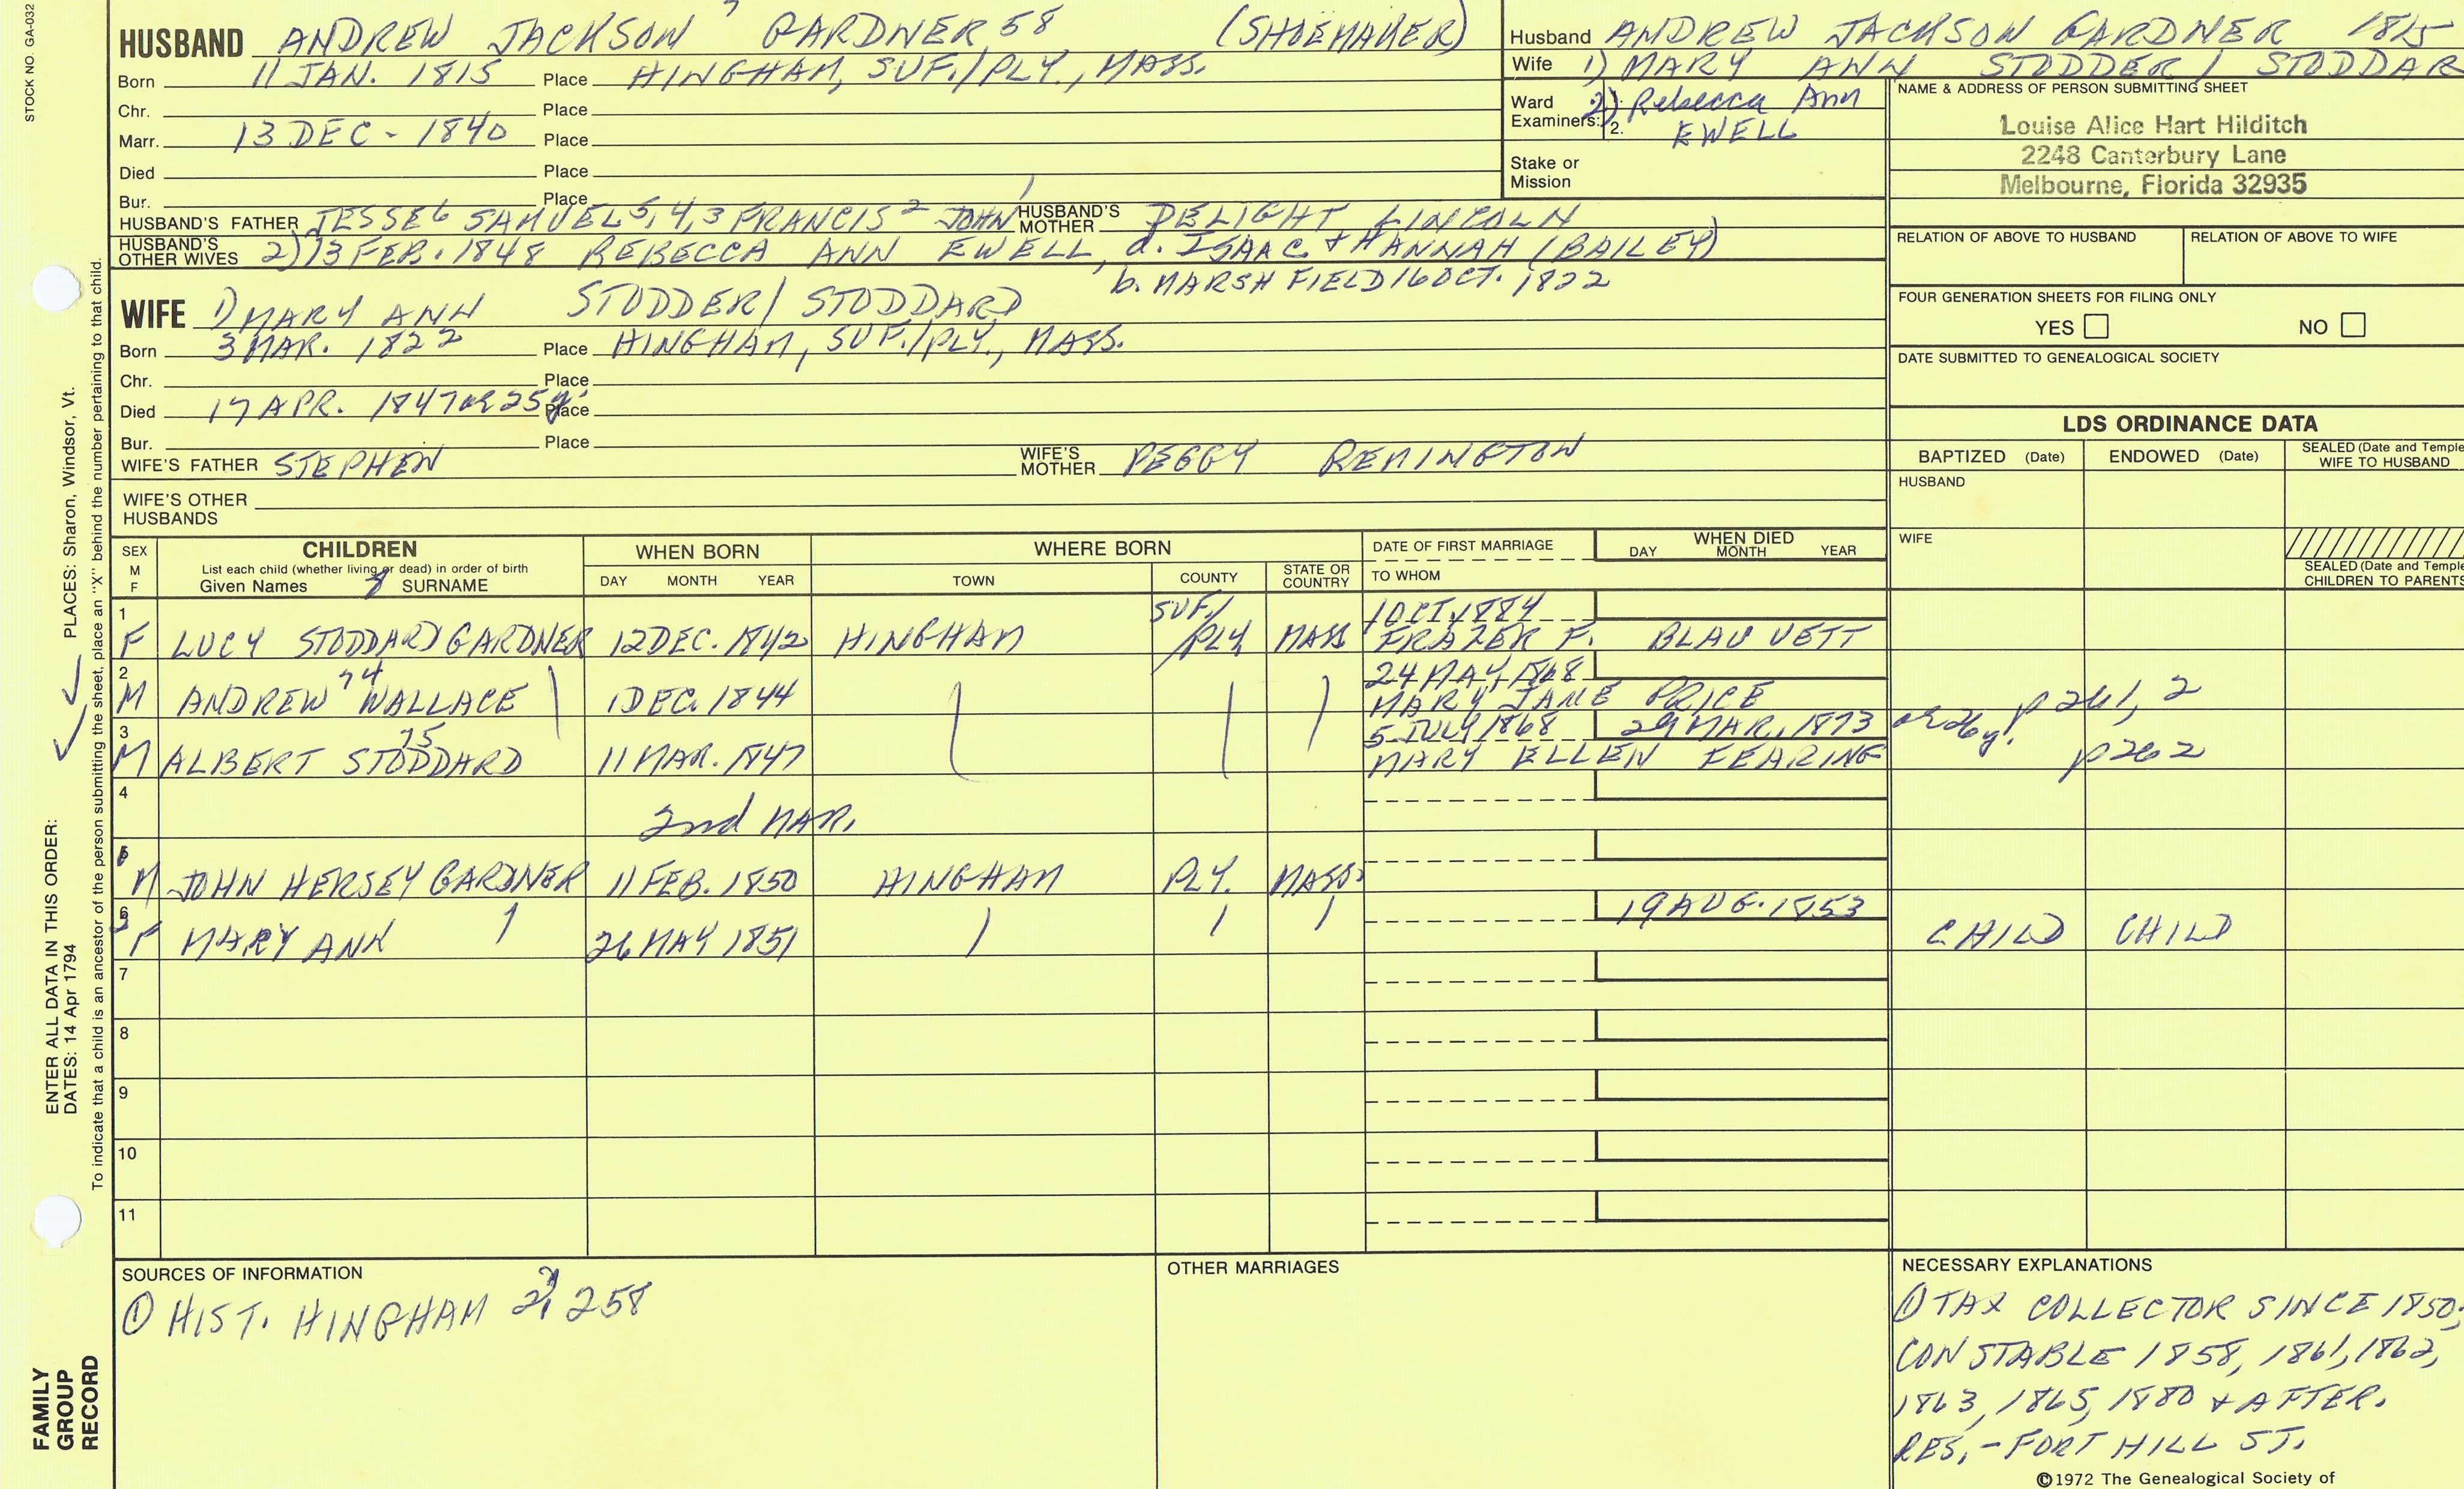 STOCK NO. GA-032
HUSBAND ANDREW JACKSON 7 GARDNER 58 (SHOEMAKER)
Born 11 JAN. 1815 Place HINGHAM, SUF./PLY., MASS.
Chr. Place
Marr. 13 DEC - 1840 Place
Died Place
Bur. Place
HUSBAND'S FATHER JESSE 6 SAMUEL 5,4,3 FRANCIS 2 JOHN 1 HUSBAND'S MOTHER DELIGHT LINCOLN
HUSBAND'S OTHER WIVES 2) 13 FEB. 1848 REBECCA ANN EWELL, d. ISAAC & HANNAH (BAILEY)
b. MARSHFIELD 16 OCT. 1822
WIFE 1) MARY ANN STODDER / STODDARD
Born 3 MAR. 1822 Place HINGHAM, SUF./PLY., MASS.
Chr. Place
Died 17 APR. 1847 ae 25 y. Place
Bur. Place
WIFE'S FATHER STEPHEN WIFE'S MOTHER PEGGY REMINGTON
WIFE'S OTHER HUSBANDS
Husband ANDREW JACKSON GARDNER 1815
Wife 1) MARY ANN STODDER / STODDAR
Ward 2) Rebecca Ann
Examiners: 2. EWELL
Stake or Mission
NAME & ADDRESS OF PERSON SUBMITTING SHEET
Louise Alice Hart Hilditch
2248 Canterbury Lane
Melbourne, Florida 32935
RELATION OF ABOVE TO HUSBAND RELATION OF ABOVE TO WIFE
FOUR GENERATION SHEETS FOR FILING ONLY
YES NO
DATE SUBMITTED TO GENEALOGICAL SOCIETY
LDS ORDINANCE DATA
BAPTIZED (Date) ENDOWED (Date) SEALED (Date and Temple
WIFE TO HUSBAND
HUSBAND
WIFE
SEALED (Date and Temple
CHILDREN TO PARENTS
SEX M F CHILDREN WHEN BORN WHERE BORN DATE OF FIRST MARRIAGE WHEN DIED
List each child (whether living or dead) in order of birth
Given Names 8 SURNAME DAY MONTH YEAR TOWN COUNTY STATE OR COUNTRY TO WHOM DAY MONTH YEAR
1 SUF./ 1 OCT. 1884
F LUCY STODDARD GARDNER 12 DEC. 1842 HINGHAM PLY MASS FRAZER F. BLAUVETT
2 74 24 MAY, 1868
M ANDREW WALLACE 1 DEC. 1844 MARY JANE PRICE p 261, 2
3 75 5 JULY 1868 29 MAR. 1873 ae 26 y.
M ALBERT STODDARD 11 MAR. 1847 MARY ELLEN FEARING p 262
4
2nd MAR.
5
M JOHN HERSEY GARDNER 11 FEB. 1850 HINGHAM PLY. MASS.
6 19 AUG. 1853
F MARY ANN 26 MAY 1851 CHILD CHILD
7
8
9
10
11
SOURCES OF INFORMATION
① HIST. HINGHAM 2, 258
OTHER MARRIAGES
NECESSARY EXPLANATIONS
① TAX COLLECTOR SINCE 1850;
CONSTABLE 1858, 1861, 1862,
1863, 1865, 1880 & AFTER.
RES. - FORT HILL ST.
©1972 The Genealogical Society of
PLACES: Sharon, Windsor, Vt.
ENTER ALL DATA IN THIS ORDER:
DATES: 14 Apr 1794
To indicate that a child is an ancestor of the person submitting the sheet, place an "X" behind the number pertaining to that child.
FAMILY
GROUP
RECORD